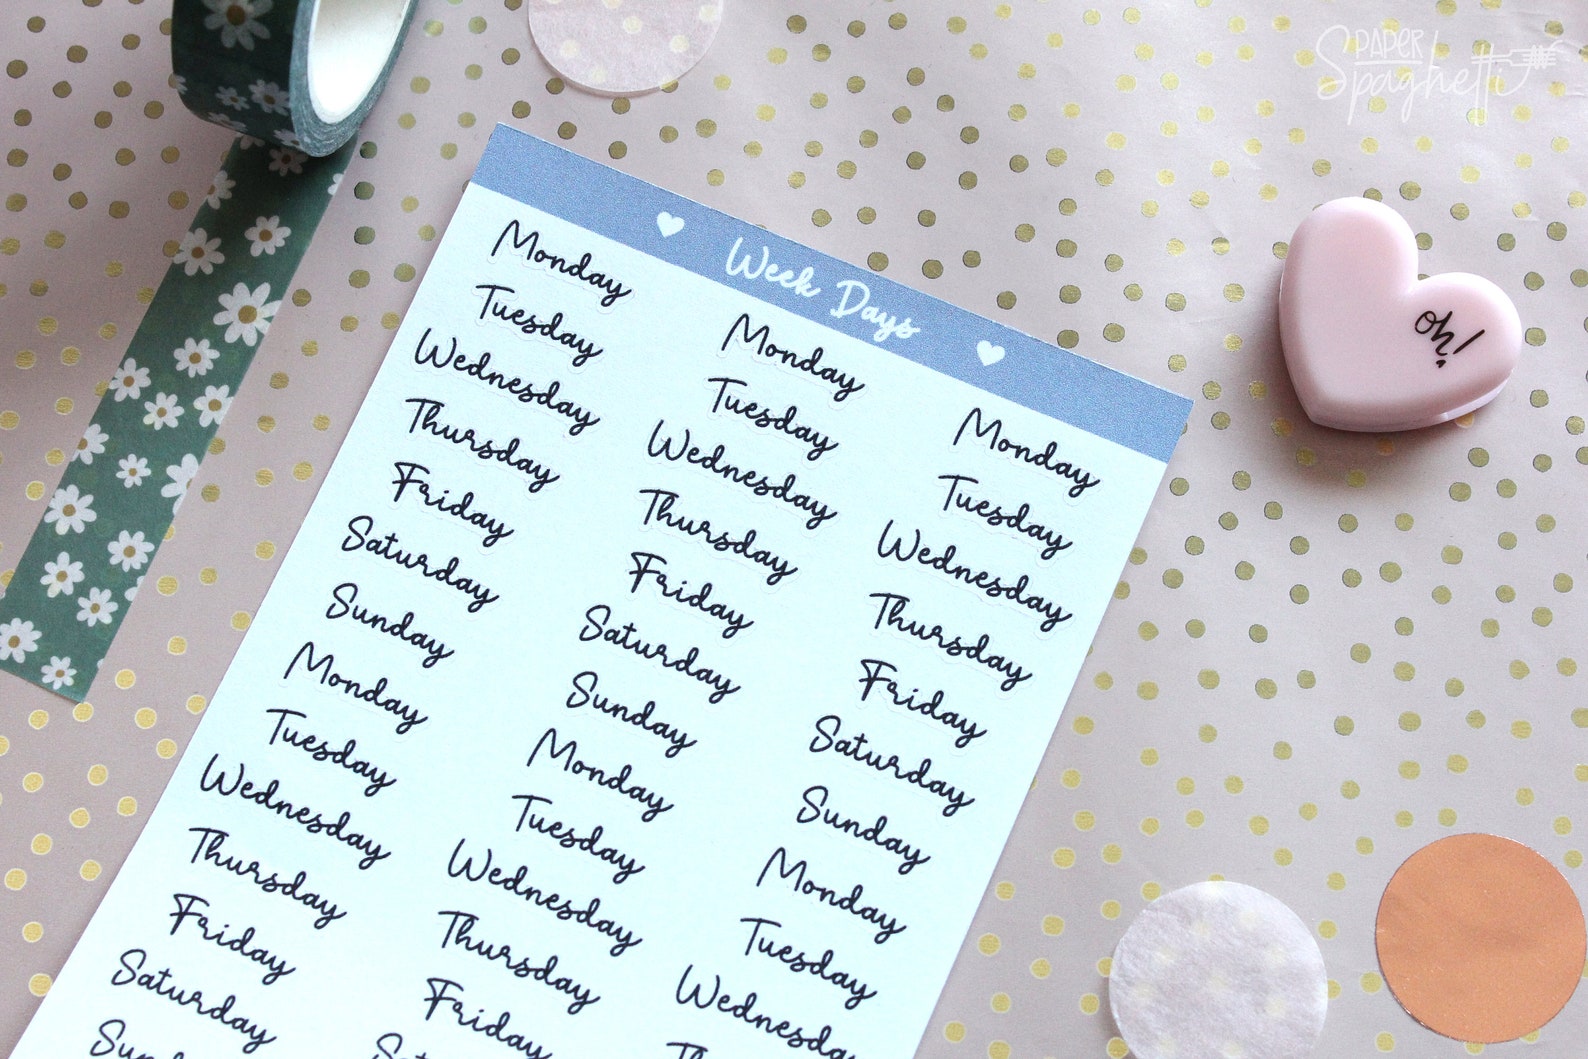 PAPER
Spaghetti
Week Days
oh!
Monday
Tuesday
Wednesday
Thursday
Friday
Saturday
Sunday
Monday
Tuesday
Wednesday
Thursday
Friday
Saturday
Monday
Tuesday
Wednesday
Thursday
Friday
Saturday
Sunday
Monday
Tuesday
Wednesday
Thursday
Friday
Monday
Tuesday
Wednesday
Thursday
Friday
Saturday
Sunday
Monday
Tuesday
Wednesday